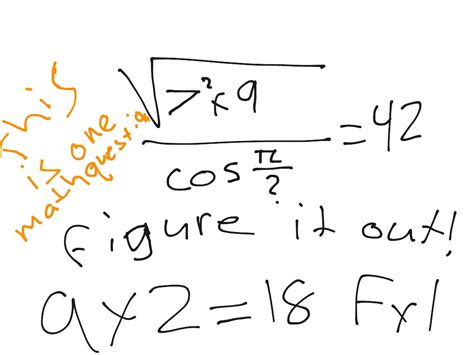 this
is one
math question
√7²×9
cos π/?
=42
figure it out!
9×2=18 Fr